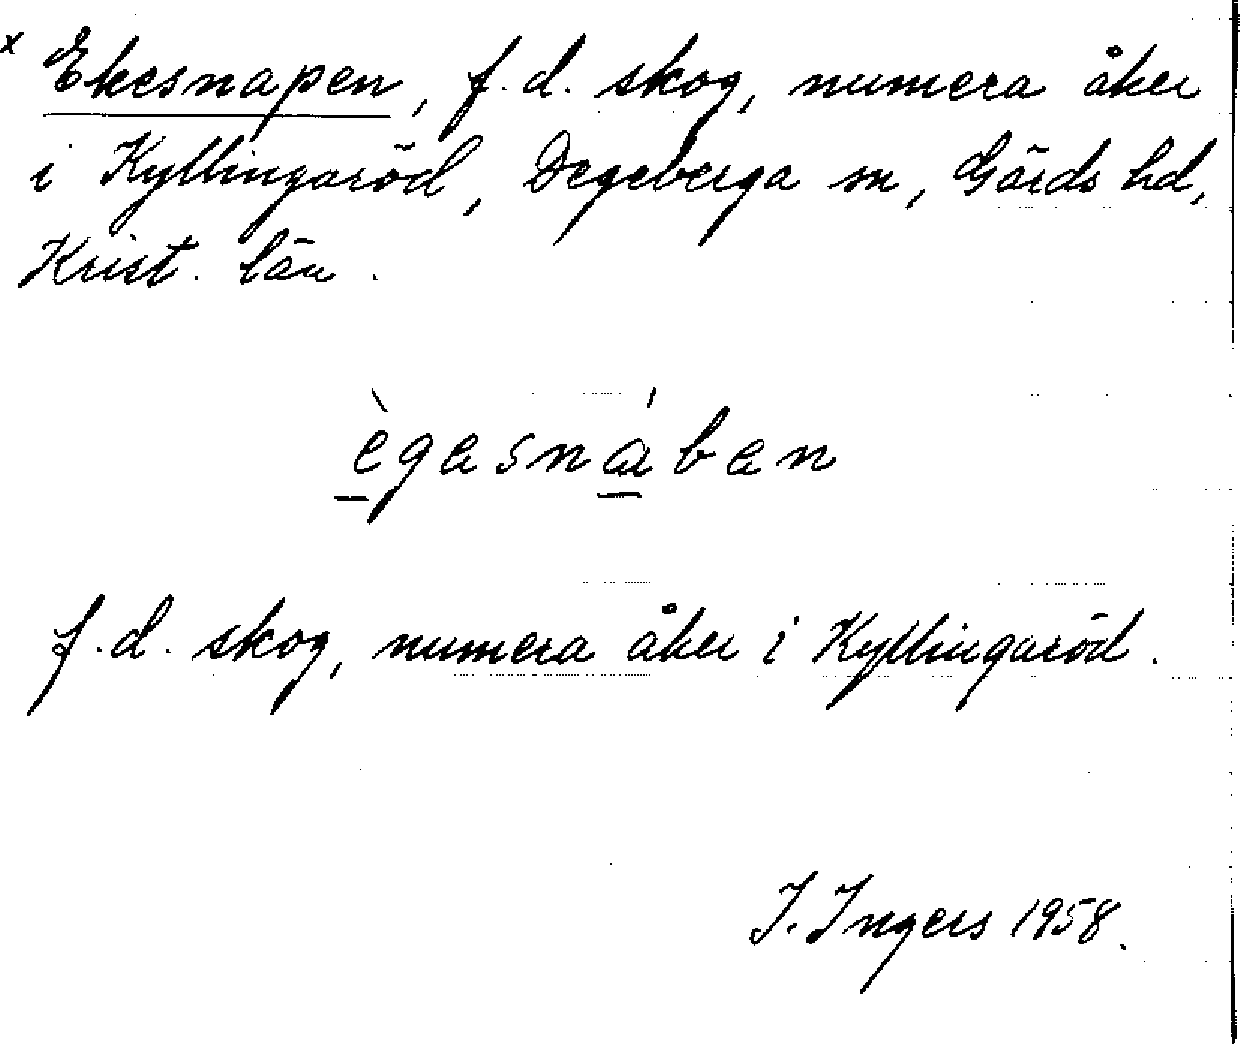 x Ekesnapen, f.d. skog, numera åker
i Kyllingaröd, Degeberga sn, Gärds hd,
Krist. län.
ègəsnábən
f.d. skog, numera åker i Kyllingaröd.
I. Ingers 1958.